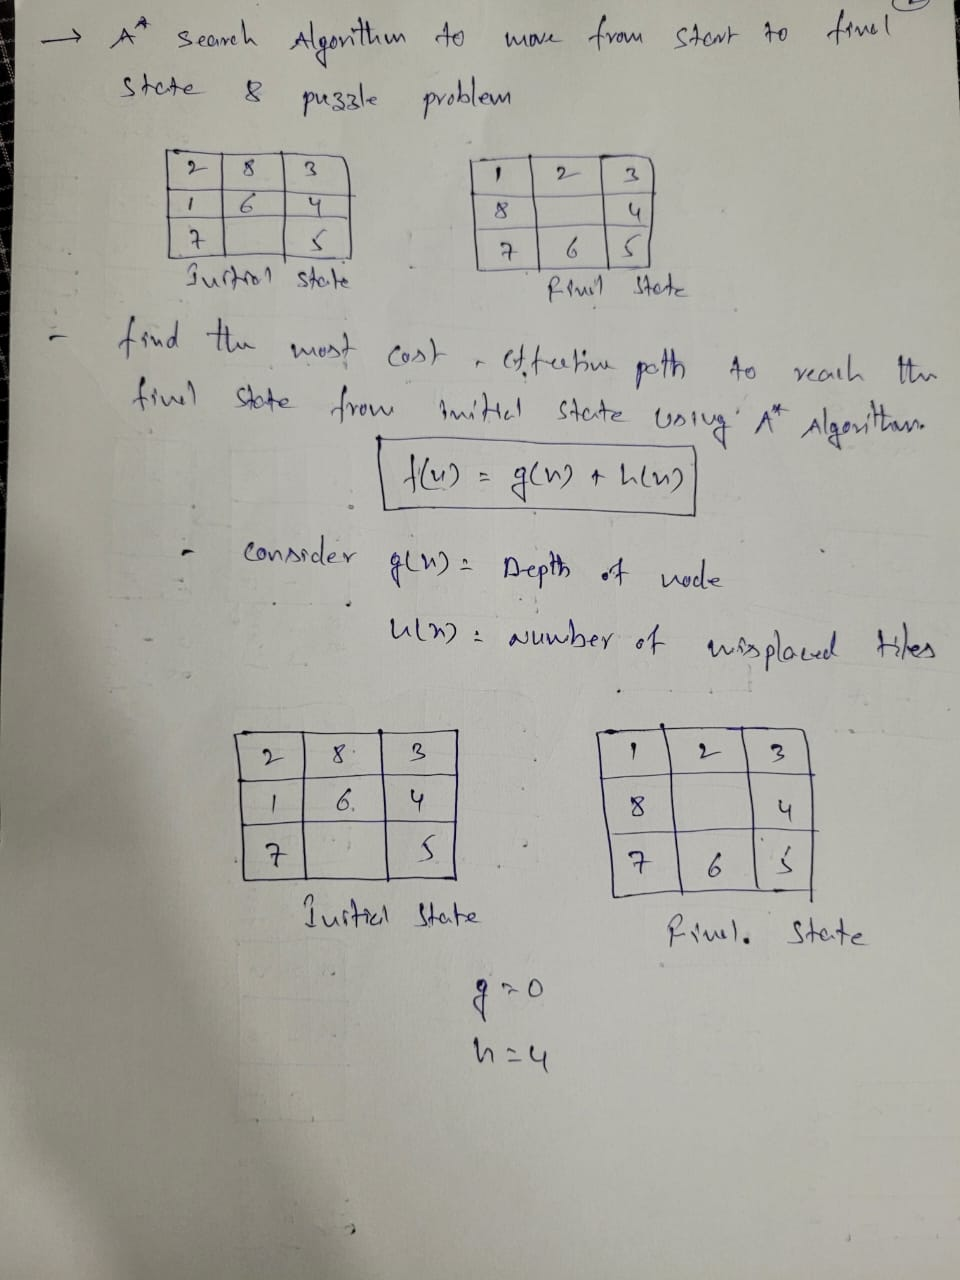 → A* Search Algorithm to move from start to final
State 8 puzzle problem
2 8 3
1 6 4
7 5
Initial state
1 2 3
8 4
7 6 5
Final State
- find the most cost-effective path to reach the
final State from initial State using A* Algorithm.
f(n) = g(n) + h(n)
- Consider g(n) = Depth of node
h(n) = Number of misplaced tiles
2 8 3
1 6 4
7 5
Initial State
1 2 3
8 4
7 6 5
Final. State
g = 0
h = 4